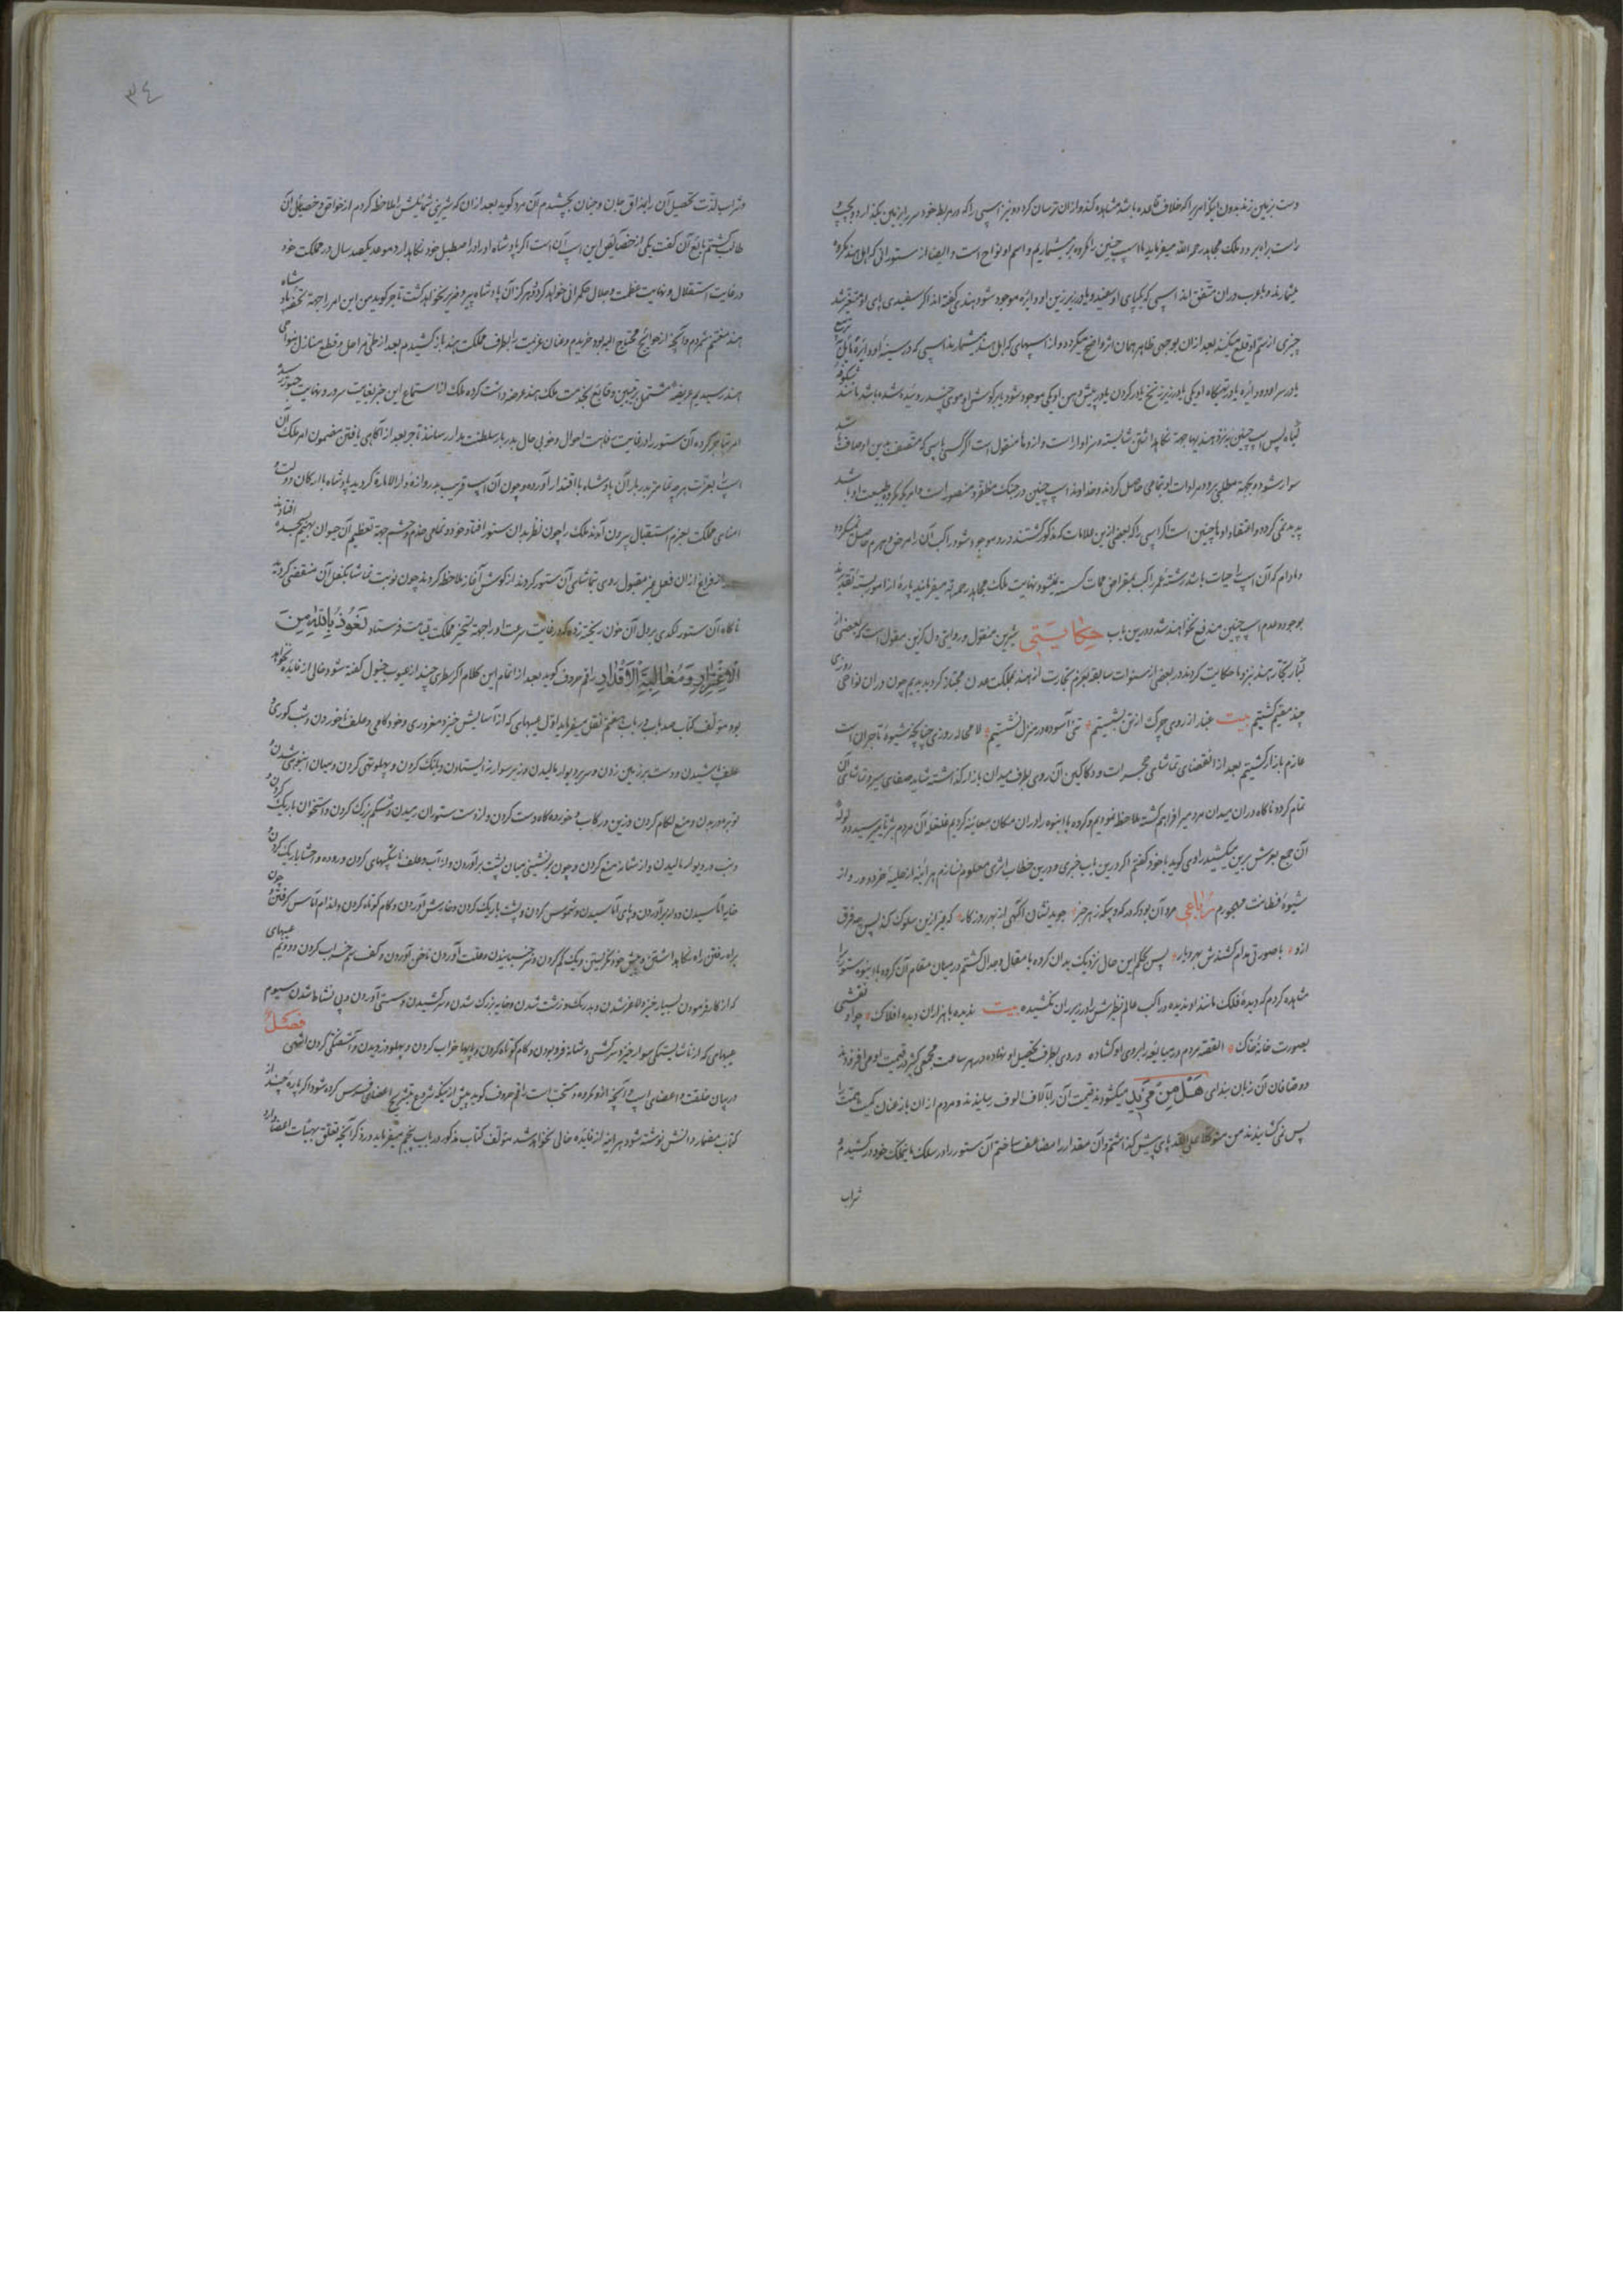 دست بر زمین زند بدون اینکه امری را که خلاف قاعده باشد مشاهده کند و از ان ترسان کردد و نیز اسپی را که در مربط خود سر را بر زمین بگذارد و بجپ و
راست براه برد و ملک مجاهد رحمه الله میفرماید ما اسپ چنین را مکروه تر میشماریم و اسم او نواح است و ایضا از ستورانی که اهل هند مکروه
میشمارند و با عرب دران متفق اند اسپی که یکپای او سفید و یا در زیر زین او دایره موجود شود و هندی گفته اند اکر سفیدی پای او متغیر شد
چیزی از سم او قلع میکنند بعد از ان بوجهی ظاهر همان اثر واضح میکردد و از اسپهای که اهل هند میشمارند اسپی که در سینه او دایره مایل
یا در سر او دو دایره یا در تهیکاه او یکی یا در زیر زنخ یا در کردن یا در پیش و پس او یکی موجود شود یا بر کوش او موی چند روئیده شده باشد مانند شکوفه
کیاه پس اسپ چنین بنزد هندیها جهة نکاهداشتن شایسته و سزاوار است و از دوما منقول است اکر کسی با اسپی که متصف بدین اوصاف باشد
سوار شود و بجهة مطلبی برود مرادات او بتمامی حاصل کردند و خداوند اسپ چنین در جنک مظفر و منصور است و امریکه مکروه طبیعت او باشد
پدید نمی کردد و اعتقاد او ما چنین است اکر اسپی را که بعضی ازین علامات که مذکور کشتند در و موجود شود راکب آن را مرض و هرم حاصل نمیکردد
مادام که آن اسپ را حیات باشد رشته عمر راکب بمقراض ممات کسسته نشود نهایت ملک مجاهد رحمه الله میفرماید پاره از امور بسته تقدیرند
بوجود و عدم اسپ چنین مندفع نخواهند شد و درین باب حکایتی شیرین منقول و روایتی دل نشین مقول است که بعضی از
کبار تجار هند بنزد ما حکایت کردند در بعضی از سنوات سابقه بعزم تجارت از هند بمملکت عدن مجتاز کردیدیم چون دران نواحی روزی
چند مقیم کشتیم بیت غبار از روی چرک از تن بشستیم تنی آسوده در منزل نشستیم لا محاله روزی چنانچه شیوه تاجران است
عازم بازار کشتیم بعد از انقضای تماشای حجرات و دکاکین آن روی بطرف میدان بازار که داشته شاید صفای سیر و تماشای آن
تمام کردد ناکاه دران میدان مردمیر افراهم کشته ملاحظه نمودیم و کروه با انبوه را دران مکان معاینه کردیم غلغله آن مردم بثریا میرسید و ولوله
آن جمع بعرش برین میکشید راوی کوید با خود کفتم اکر درین باب خبری و درین خطاب اثری معلوم نسازم هر آینه از حلیه خرد دور و از
شیوه فطانت مهجورم رباعی مرد آن بود که در که و چکه ز هر چیز جوید نشان آکهی از بهر روزکار کو غیر ازین سلوک کند پس چه فرق
ازو با صورتی مدام کشندش بهر دیار پس بحکم این حال نزدیک بدان کروه با مقال و جدال کشتم در میان مقام آن کروه با انبوه ستور را
مشاهده کردم که دیده فلک مانند او ندیده و راکب عالم نظیرش را در زیر ران نکشیده بیت ندیده با هزاران دیده افلاک چو او نقشی
بصورت خانه خاک القصه مردم در مبایعه را بروی او کشاده و روی بطرف تحصیل او نهاده در هر ساعت مجمعی کثیر در قیمت او می افزودند
و صاحبان آن زبان بندای هَلْ مِنْ مَزِید میکشودند قیمت آن را بآلاف الوف رسانیدند و مردم از ان باز عنان کمیت همت را
پس می کشانیدند من متوکلا علی الله پای پیش گذاشتم و آن مقدار را مضاعف ساختم آن ستور را در سلک مایملک خود در کشیدم و
شراب
٣٤
و شراب لذت تحصیل آن را بمذاق جان و جنان بچشیدم آن مرد کوید بعد از ان که شیرینی شمائلش را ملاحظه کردم از خواص و خصیصه آن
طالب کشتم بایع آن کفت یکی از خصائص این اسپ آن است اکر پادشاه او را در اصطبل خود نکاهدارد موعد یکصد سال در مملکت خود
در غایت استقلال و نهایت عظمت و جلال حکمرانی خواهد کرد و هرکز آن پادشاه پیر و ضریر نخواهد کشت تاجر کوید من این امر را جهة تحفه پادشاه
هند مغتنم شمردم و آنچه از حوایج محتاج الیه بود خریدم و عنان عزیمت را بطرف مملکت هند باز کشیدم بعد از طی مراحل و قطع منازل بنواحی
هند رسیدیم عریضه مشتمل بر تبیین وقایع بخدمت ملک هند عرضه داشت کرده ملک از استماع این خبر بغایت سرور و نهایت حبور رسید
امر بتاجر کرده آن ستور را در غایت رفاهت احوال و خوبی حال بدربار سلطنت مدار رسانند تاجر بعد از آکاهی یافتن مضمون امر ملک آن
اسپ را بعزت هر چه تمامتر بدربار آن پادشاه با اقتدار آورده و چون آن اسپ قریب بدروازه دار الاماره کردید پادشاه با ارکان دولت و
امنای مملکت بعزم استقبال بیرون آمدند ملک را چون نظر بدان ستور افتاد خود و تمامی خدم و حشم جهة تعظیم آن حیوان بهیم بسجده افتادند
از فراغ از ان فعل غیر مقبول روی بتماشای آن ستور کردند از کوش آغاز ملاحظه کردند چون نوبت تماشا بکفل آن منقضی کردید
ناکاه آن ستور لکدی بر دل آن خون ریخته زده که در غایت سرعت او را جهة تسخیر مملکت قیامت فرستاد نَعُوذُ بِاللّٰهِ مِنَ
الْاِغْتِرَارِ وَمُغَالِبَةِ الْاَقْدَار راقم حروف کوید بعد از اتمام این کلام اکر سطری چند از عیوب خیول کفته شود خالی از فایده نخواهد
بود مؤلف کتاب صد باب در باب هفتم نقل میفرماید اول عیبهای که از آسایش خیزد مغروری و خود کامی و علف ناخوردن و شب کوری و
علف پاشیدن و دست بر زمین زدن و سر بر دیوار مالیدن و زیر سوار نه ایستادن و بلنک کردن و پهلو تهی کردن و میان انبوهی شدن و
توبره دریدن و منع لکام کردن و زین و رکاب و خورده کاه دست کردن و از دست ستوران رمیدن و شکم بزرک کردن و استخوان باریک کردن و
دنب بر دیوار مالیدن و از شانه منع کردن و چون برنشینی میان پشت برآوردن و از آب و علف ناشکیبهای کردن و روده و احشا باریک کردن و
خایه آماسیدن و دار بر آوردن و پای آماسیدن و شموس کردن و پشت باریک کردن و خارش آوردن و کام کوتاه کردن و اندام آماس کرفتن و چون
براه رفتن راه نکاهداشتن و پیش خود نکریستن و یک کم کردن و حرز چسبانیدن و علت آوردن و ناخن آوردن و کف سم خراب کردن و دوم عیبهای
که از کار فرمودن بسیار خیزد لاغر شدن و بدرنک و زشت شدن و خایه بزرک شدن و سر کشیدن و سستی آوردن و بی نشاط شدن سیوم
عیبهای که از ناشایستکی سوار خیزد سرکشی و شانه فرو بودن و کام کوتاه کردن و پایها خراب کردن و پهلو دزدیدن و آشفتکی کردن انتهی فصل
در بیان خلقت و اعضای اسپ و آنچه از و مکروه و مستحب است راقم حروف کوید پیش از آنکه شروع بتشریح اعضای فرس کرده شود اکر پاره چند از
کتاب مضمار دانش نوشته شود هر آینه از فایده خالی نخواهد شد مؤلف کتاب مذکور در باب پنجم میفرماید در ذکر آنچه تعلق بهیئات اعضا دارد